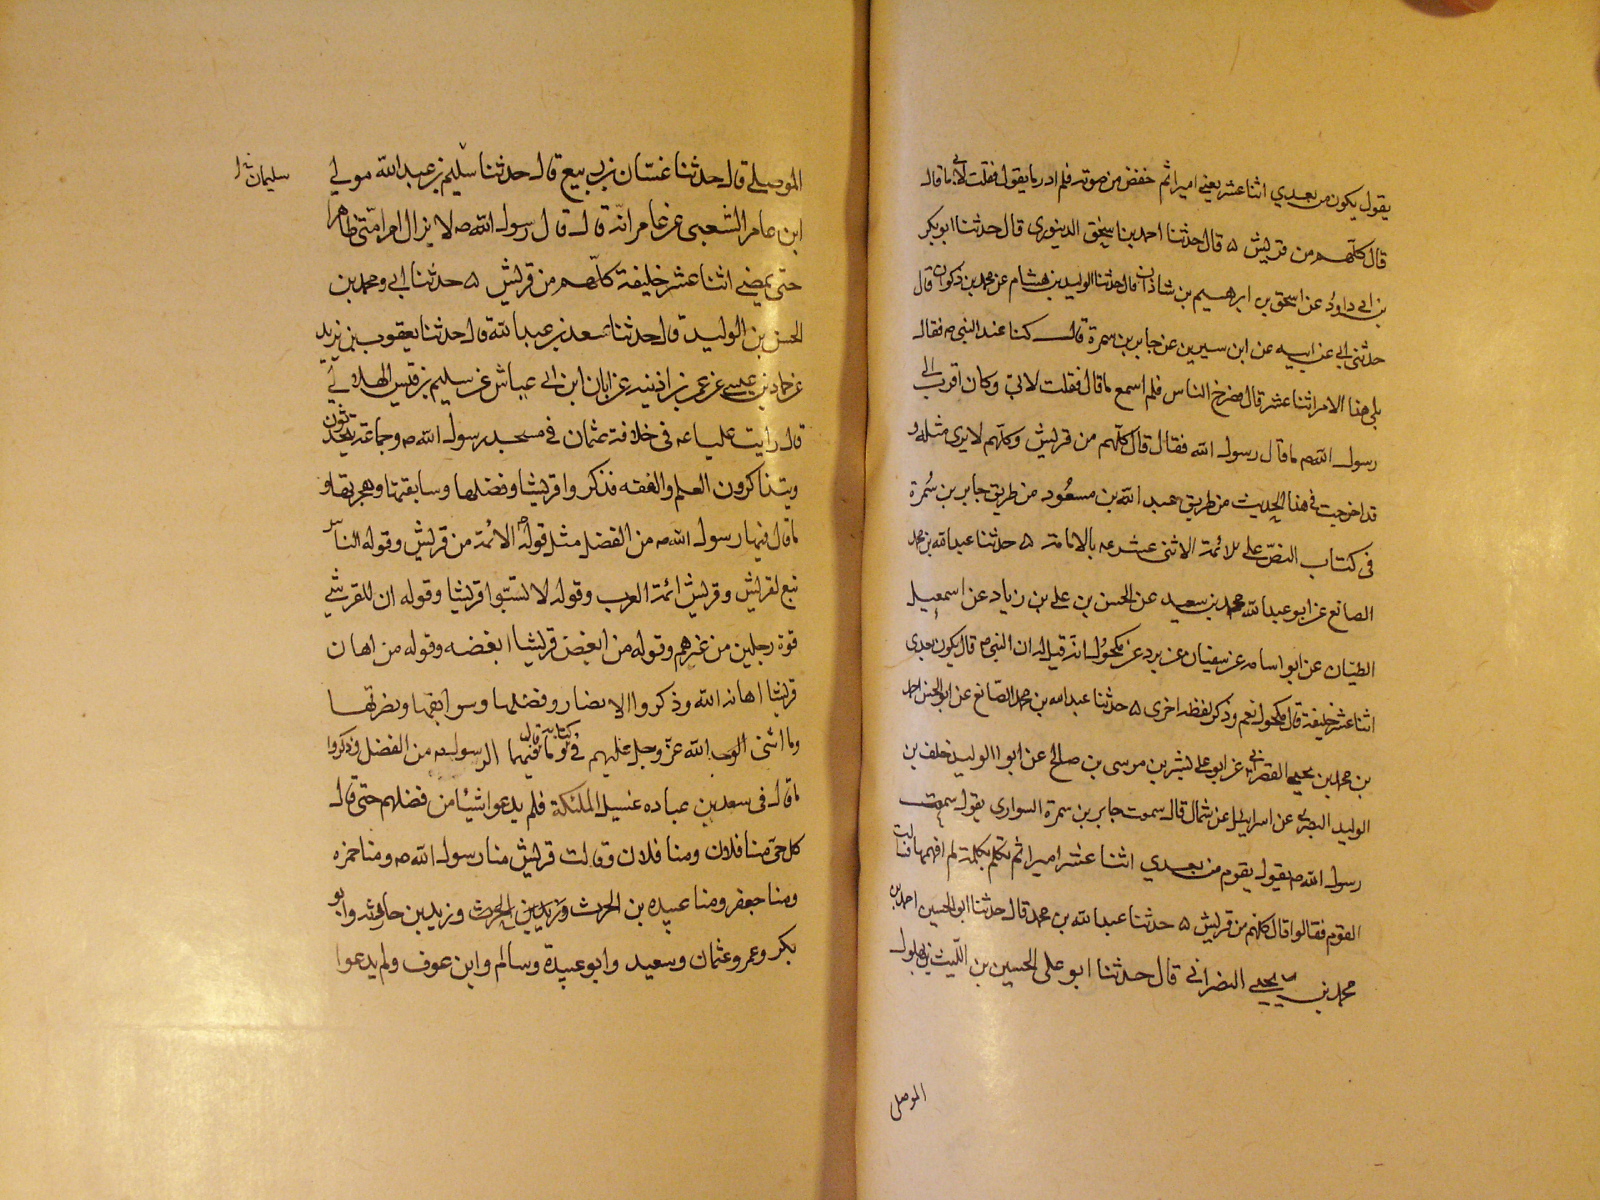 يقول يكون من بعدي اثنا عشر يعني اميرا ثم خفض من صوته فلم ادر ما يقول فقلت لابي ما قال
قال كلّهم من قريش ۵ قال حدثنا احمد بن اسحق الدينوري قال حدثنا ابو بكر
بن ابي داود عن اسحق بن ابرهيم بن شاذان قال حدثنا الوليد بن هشام عن محمد بن ذكوان قال
حدثنى ابي عن ابيه عن ابن سيرين عن جابر بن سمرة قال كنا عند النبي ص فقال
يلى هذا الامر اثنا عشر قال فصرخ الناس فلم اسمع ما قال فقلت لابي وكان اقرب الى
رسول الله ص ما قال رسول الله فقال قال كلّهم من قريش وكلّهم لا يرى مثله و
قد اخرجت في هذا الحديث من طريق عبد الله بن مسعود من طريق جابر بن سمرة
فى كتاب النصّ على للائمة الاثنى عشر عه بالامامة ۵ حدثنا عبد الله بن محمد
الصانع عن ابو عبد الله محمد بن سعيد عن الحسن بن على بن زياد عن اسمعيل
الطيّان عن ابو اسامه عن سفيان عن برد عن مكحول انه قيل له ان النبي ص قال يكون بعدى
اثنا عشر خليفة قال مكحول نعم وذكر لفظه اخرى ۵ حدثنا عبد الله بن محمد الصّانع عن ابو الحسن احمد
بن محمد بن يحيى القصراني عن ابو على بشر بن موسى بن صالح عن ابو الوليد خلف بن
الوليد البصري عن اسرائيل عن سماك قال سمعت جابر بن سمرة السوارى يقول سمعت
رسول الله ص يقول يقوم من بعدي اثنا عشر اميرا ثم تكلم بكلمة لم افهمها فسالت
القوم فقالوا قال كلهم من قريش ۵ حدثنا عبد الله بن محمد قال حدثنا ابو الحسين احمد بن
محمد بن يحيى القصراني قال حدثنا ابو على الحسين بن الليث بن بهلول
الموصلى
الموصلي قال حدثنا غسّان بن ربيع قال حدثنا سليم بن عبد الله مولي
سليمان
ابن عامر الشعبى عن عامر انّه قال قال رسول الله ص لا يزال امر امّتى ظاهرا
حتى يمضي اثنا عشر خليفة كلّهم من قريش ۵ حدثنا ابي ومحمد بن
الحسن بن الوليد قال حدثنا سعد بن عبد الله قال حدثنا يعقوب بن يزيد
عن حماد بن عيسى عن عمر بن اذينه عن ابان ابن ابى عياش عن سليم بن قيس الهلالي
قال رايت عليا عه فى خلافة عثمان فى مسجد رسول الله ص وجماعة يتحدثون
ويتذاكرون العلم والفقه فذكروا قريشا وفضلها وسابقتها وهجرتها و
ما قال فيها رسول الله ص من الفضل مثل قوله ص الائمة من قريش وقوله الناس
تبع لقريش وقريش ائمة العرب وقوله لا تسبّوا قريشا وقوله ان للقرشي
قوة رجلين من غيرهم وقوله من ابغض قريشا ابغضه وقوله من اهان
قريشا اهانه الله وذكروا الانصار وفضلها وسوابقها ونصرتها
وما اثنى الله عزّ وجل عليهم في كتابه وما قال فيهما الرسول ص من الفضل وذكروا
ما قال فى سعد بن عباده غسيل الملئكة فلم يدعوا شيئا من فضلهم حتى قال
كل حى منا فلان ومنا فلان وقالت قريش منا رسول الله ص ومنا حمزه
ومنا جعفر ومنا عبيده بن الحرث وزيد بن الحرث وزيد بن حارثه وابو
بكر وعمر وعثمان وسعيد وابو عبيدة وسالم وابن عوف ولم يدعوا